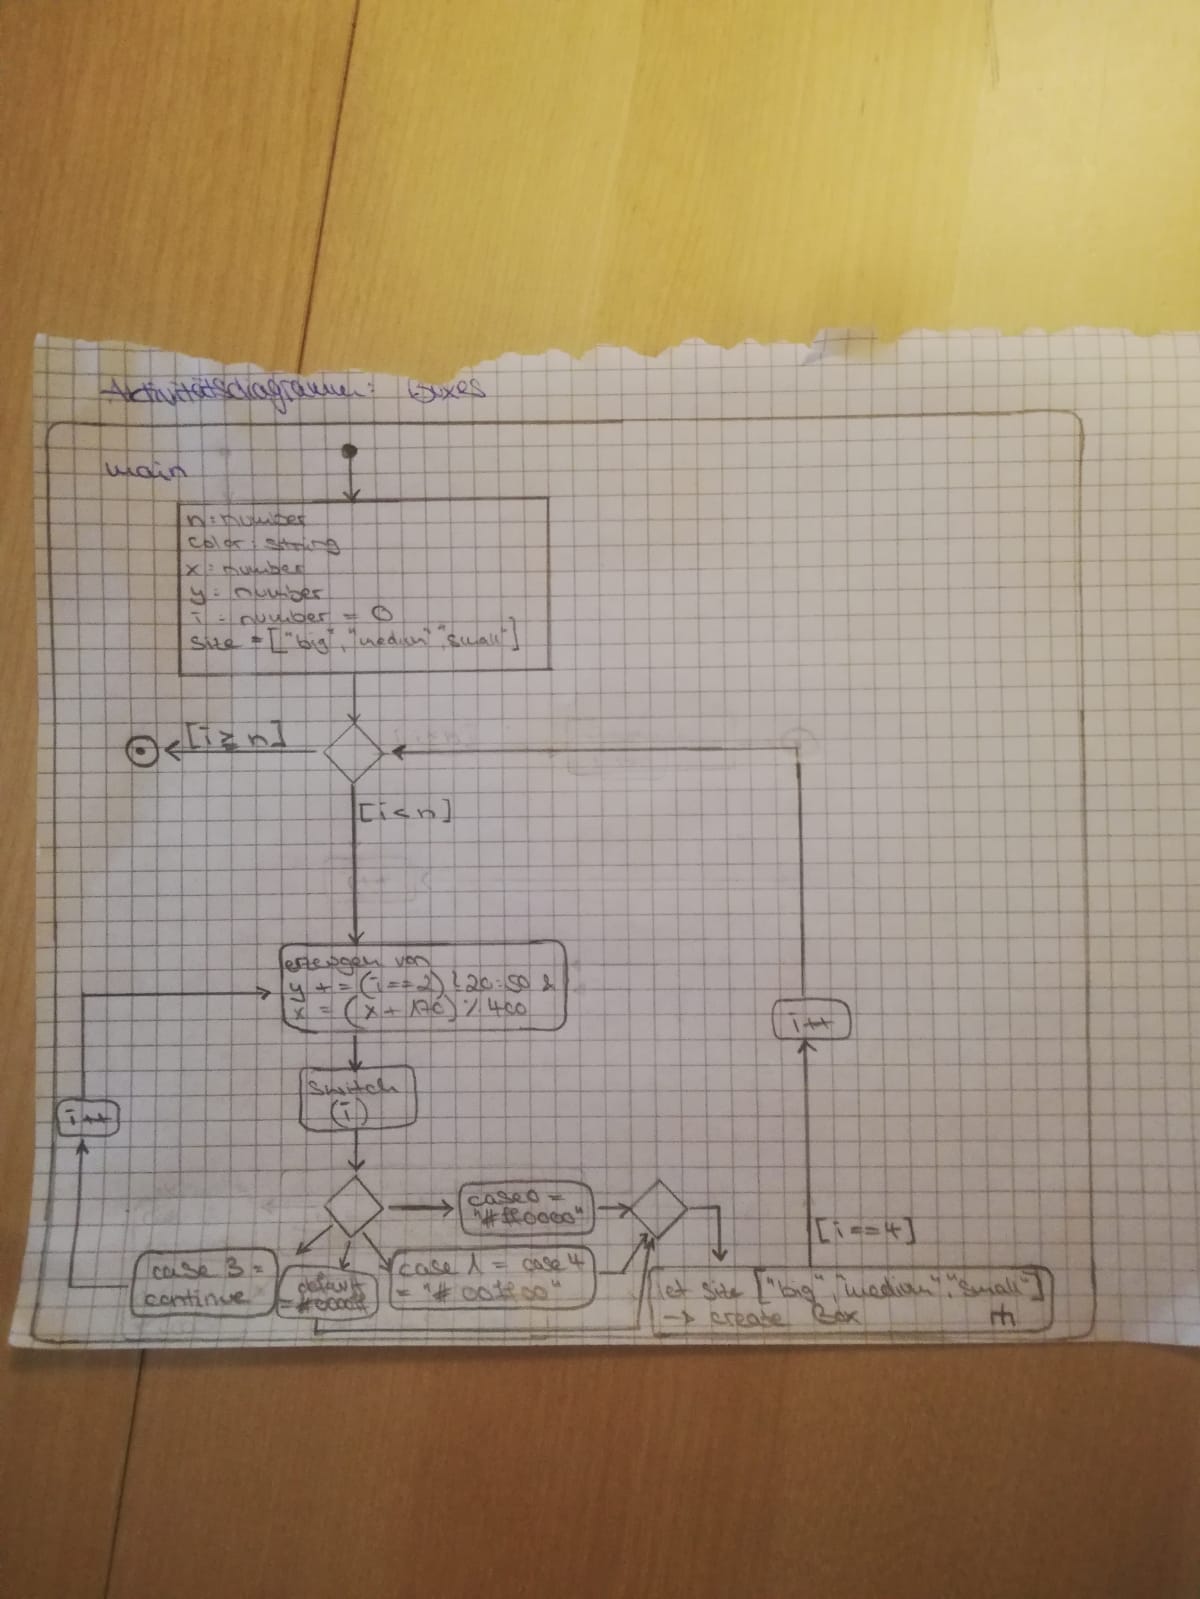 Aktivitätsdiagramm: Boxes
main
n: number
color: string
x: number
y: number
i: number = 0
size = ["big", "medium", "small"]
[i ≥ n]
[i < n]
erzeugen von
y += (i==2) ? 20 : 50 &
x = (x + 170) % 400
i++
Switch
(i)
i++
case 0 =
"#ff0000"
[i == 4]
case 3 =
continue
default
= #0000ff
case 1 = case 4
= "#00ff00"
let size ["big", "medium", "small"]
→ create Box